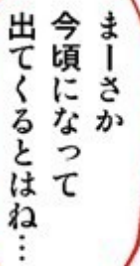 まーさか
今頃になって
出てくるとはね…